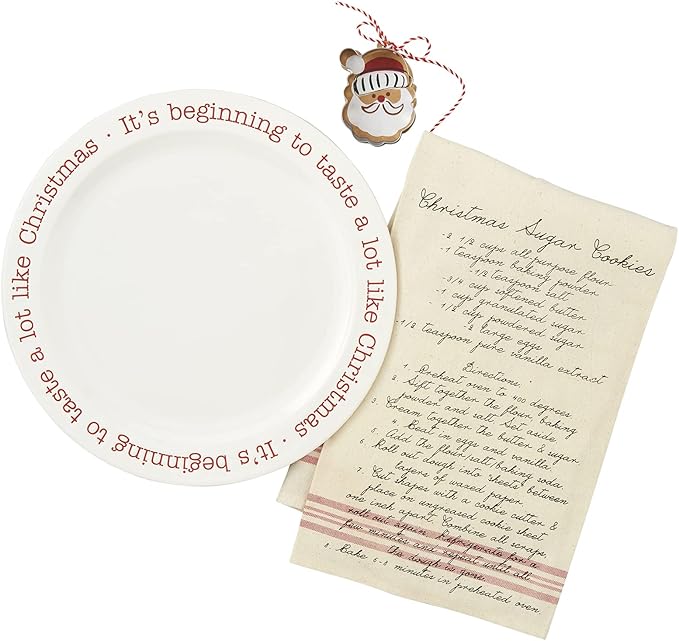 It's beginning to taste a lot like Christmas · It's beginning to taste a lot like Christmas ·
Christmas Sugar Cookies
-2 1/2 cups all purpose flour
-1 teaspoon baking powder
-1/2 teaspoon salt
-3/4 cup softened butter
-1 cup granulated sugar
-1/2 cup powdered sugar
-2 large eggs
-1/2 teaspoon pure vanilla extract
Directions:
1. Preheat oven to 400 degrees
2. Sift together the flour, baking
powder and salt. Set aside
3. Cream together the butter & sugar
4. Beat in eggs and vanilla
5. Add the flour/salt/baking soda
6. Roll out dough into sheets between
layers of waxed paper
7. Cut shapes with a cookie cutter &
place on ungreased cookie sheet
one inch apart. Combine all scraps,
roll out again. Refrigerate for a
few minutes and repeat until all
the dough is gone.
8. Bake 6-8 minutes in preheated oven.